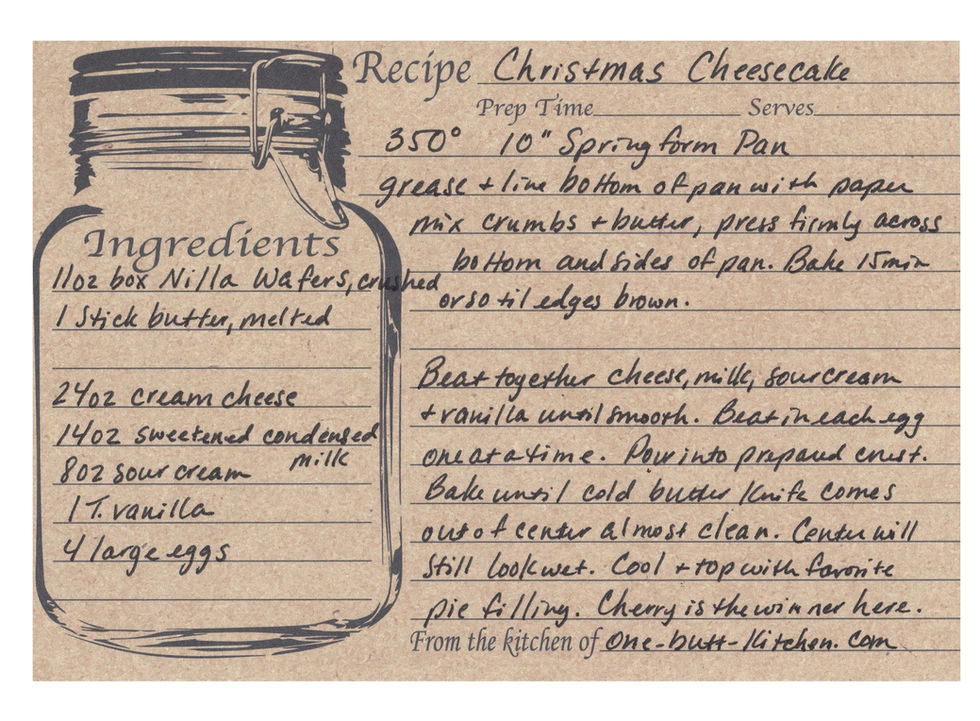 Recipe Christmas Cheesecake
Prep Time Serves
350° 10" Springform Pan
grease + line bottom of pan with paper
mix crumbs + butter, press firmly across
bottom and sides of pan. Bake 15min
or so til edges brown.
Beat together cheese, milk, sour cream
+ vanilla until smooth. Beat in each egg
one at a time. Pour into prepared crust.
Bake until cold butter knife comes
out of center almost clean. Center will
still look wet. Cool + top with favorite
pie filling. Cherry is the winner here.
From the kitchen of one-butt-kitchen.com
Ingredients
11oz box Nilla Wafers, crushed
1 Stick butter, melted
24oz cream cheese
14oz sweetened condensed
milk
8oz sour cream
1 T. vanilla
4 large eggs